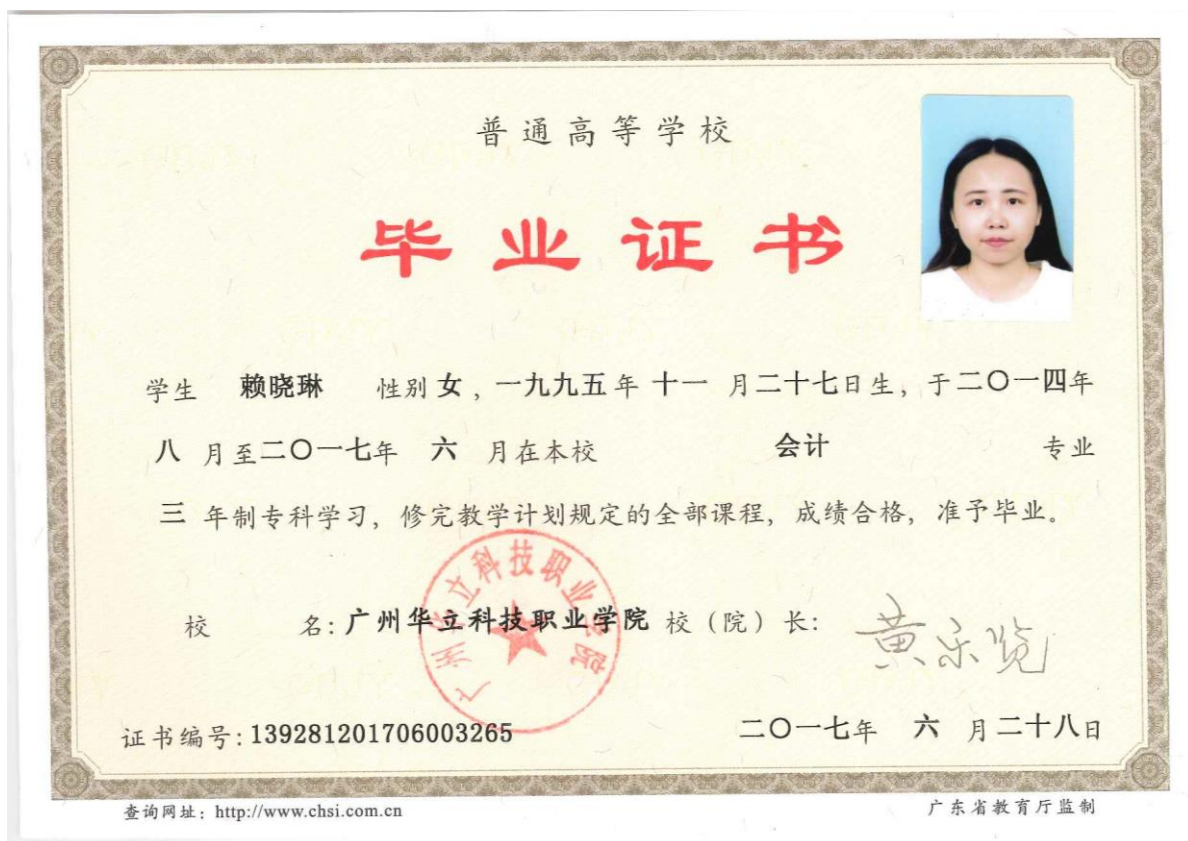 普通高等学校
毕业证书
学生 赖晓琳 性别 女 ，一九九五年 十一 月二十七日生，于二〇一四年
八 月至二〇一七年 六 月在本校 会计 专业
三 年制专科学习，修完教学计划规定的全部课程，成绩合格，准予毕业。
广州华立科技职业学院
校 名：广州华立科技职业学院 校（院）长：
黄乐览
证书编号：139281201706003265
二〇一七年 六 月二十八日
查询网址：http://www.chsi.com.cn
广东省教育厅监制